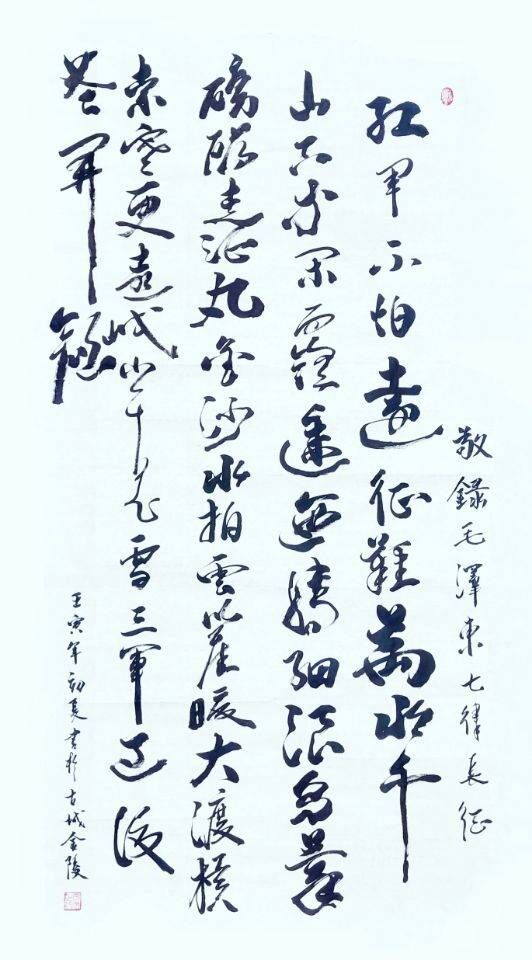 敬錄毛澤東七律長征
紅軍不怕遠征難萬水千
山只等閑五嶺逶迤騰細浪烏蒙
磅礴走泥丸金沙水拍雲崖暖大渡橫
索寒更喜岷山千里雪三軍過後
盡開顏
壬寅年初夏書於古城金陵